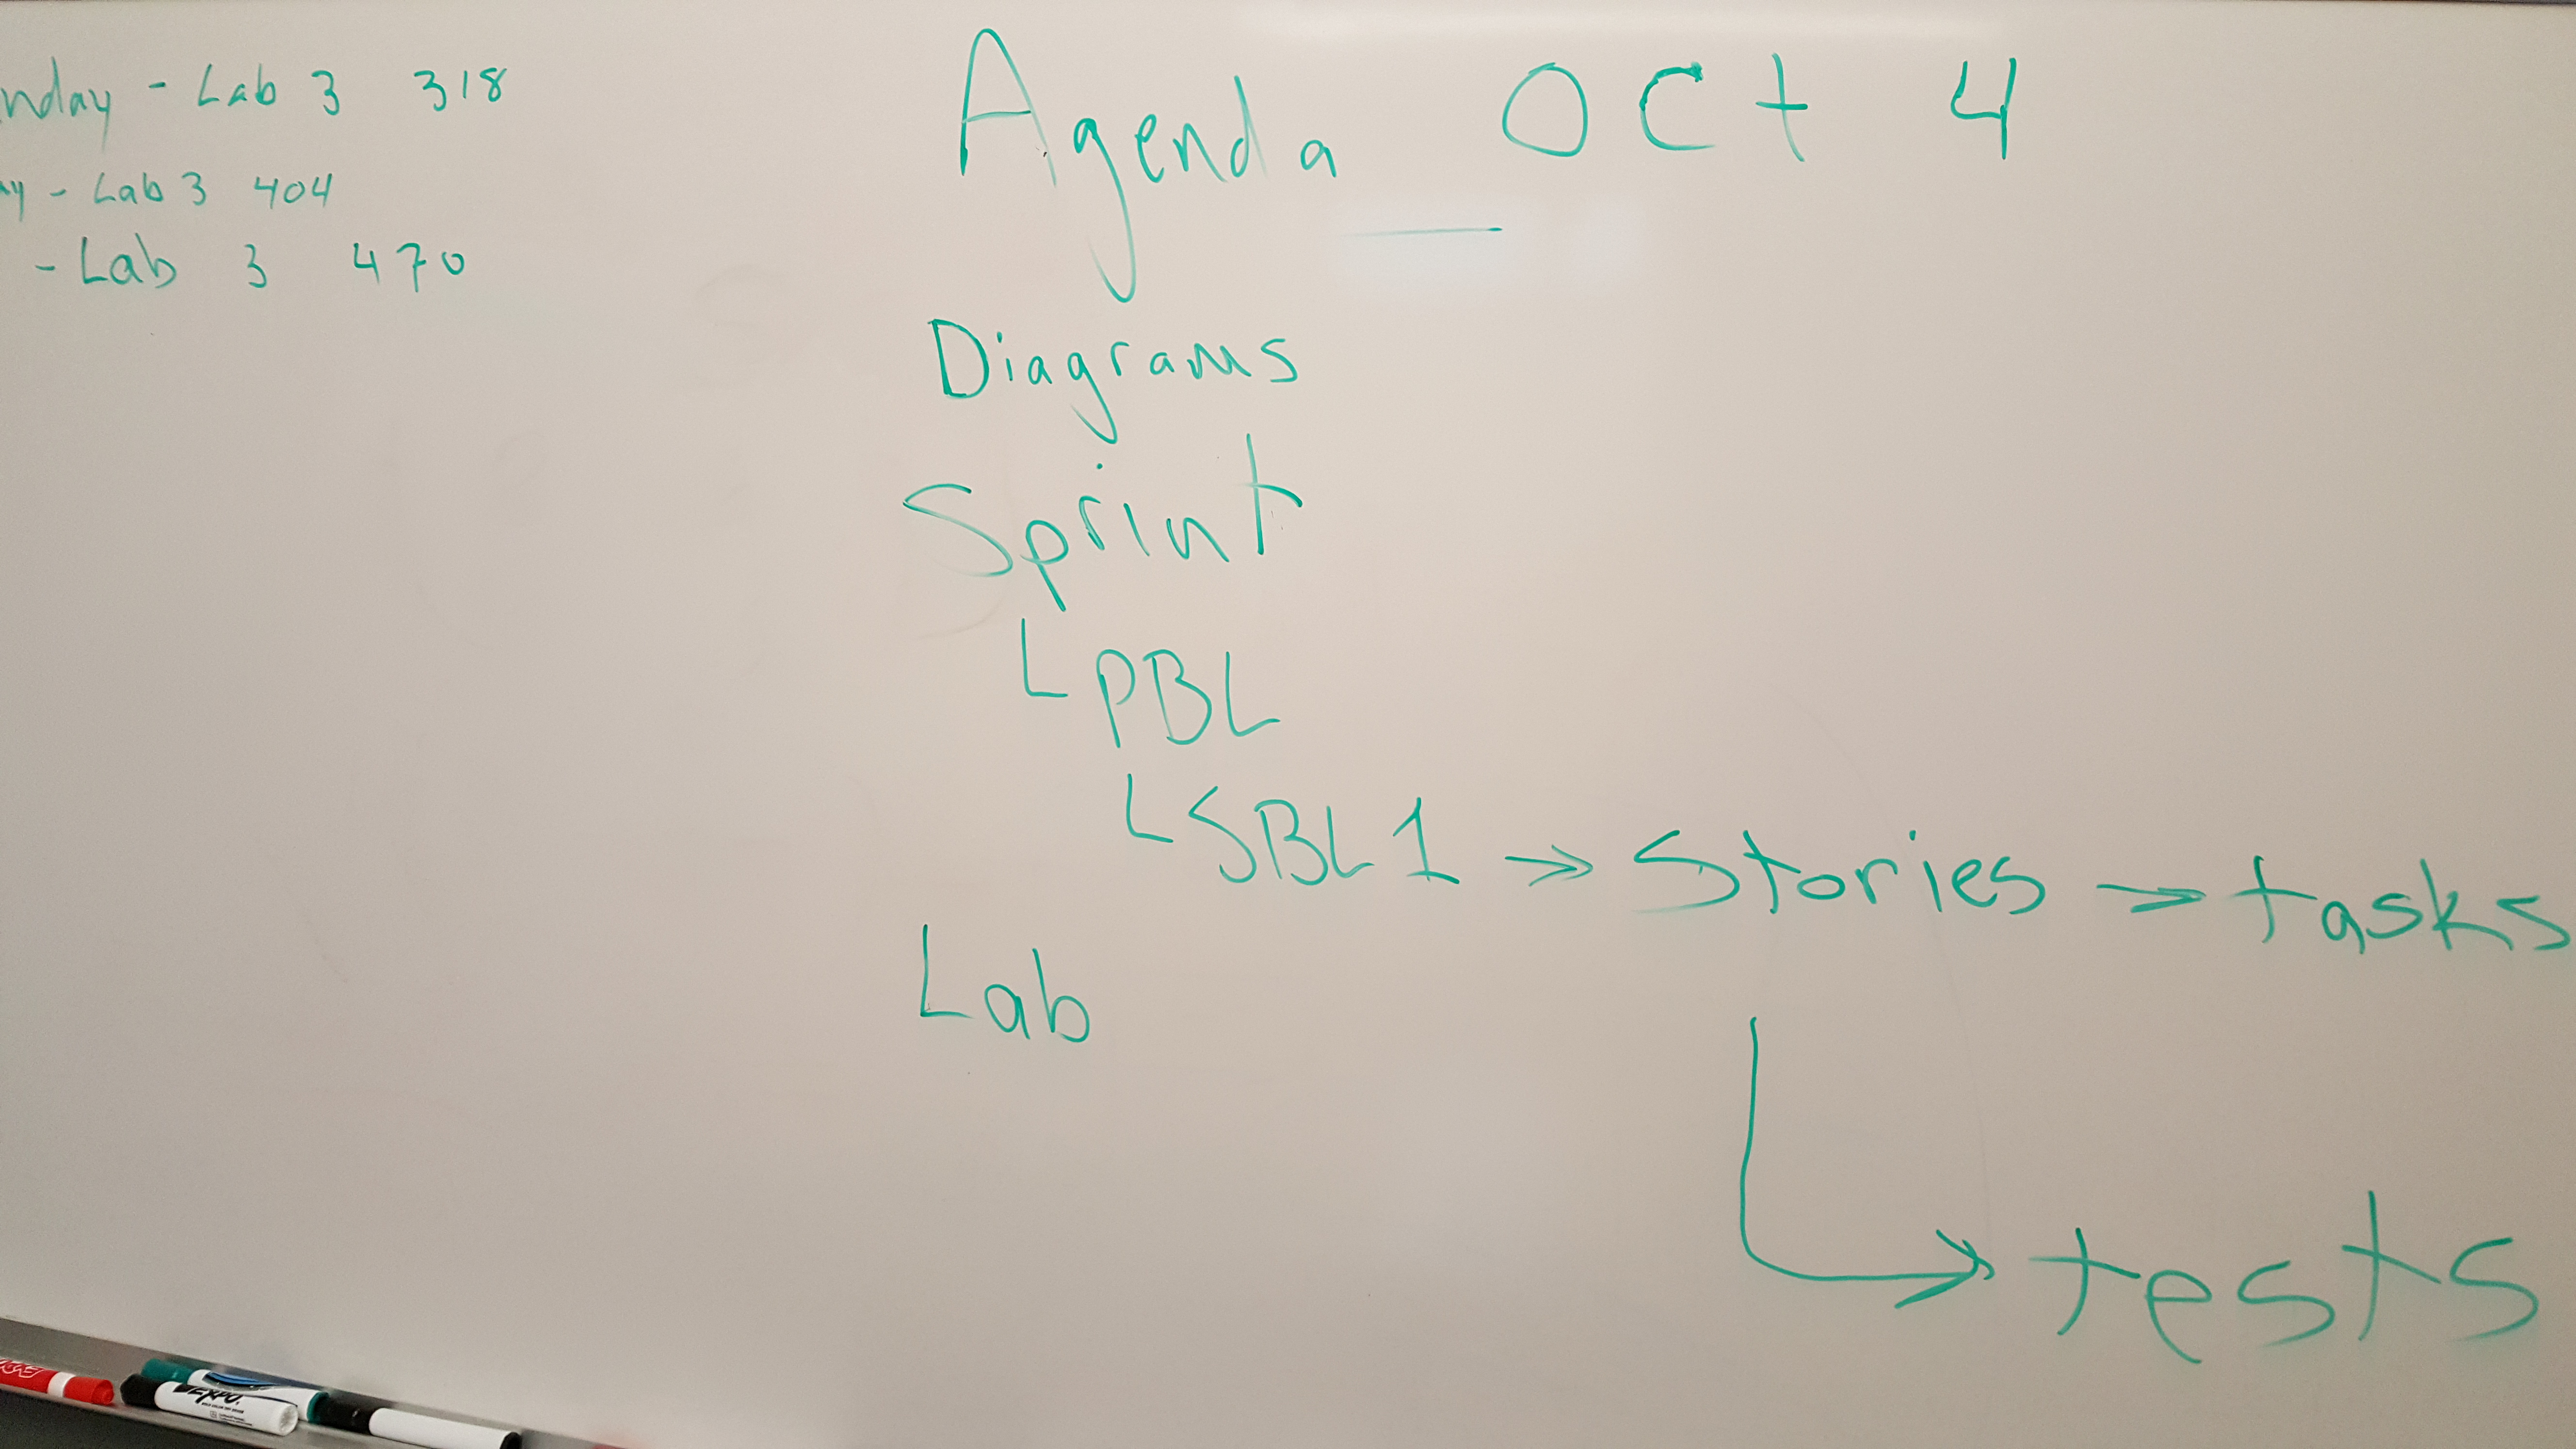 nday - Lab 3 318
ay - Lab 3 404
- Lab 3 470
Agenda OCt 4
Diagrams
Sprint
PBL
SBL1 → Stories → tasks
→ tests
Lab
EXPO